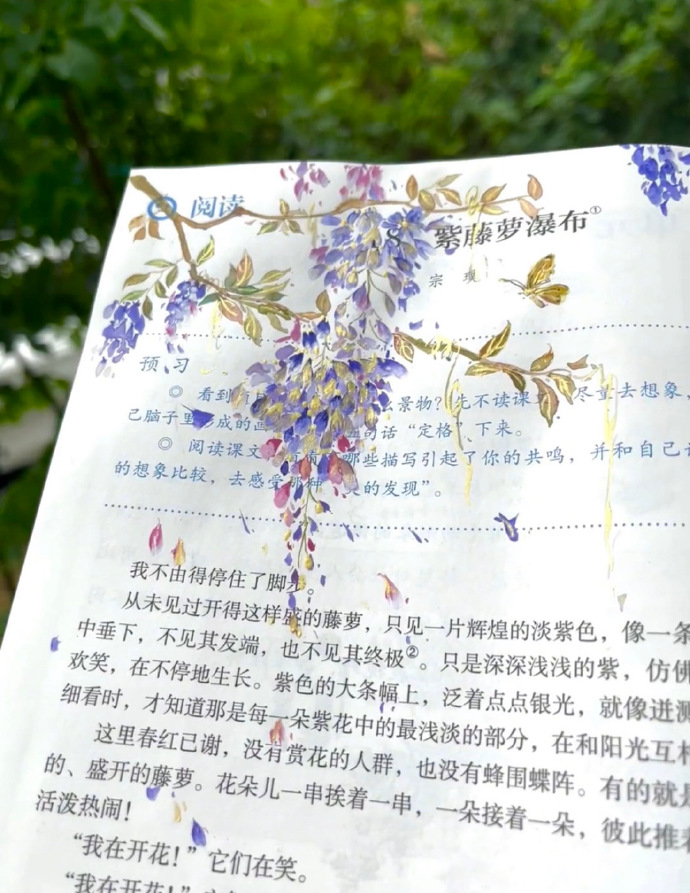 阅读
紫藤萝瀑布①
宗 璞
预 习
◎ 看到 景物？先不读课 尽量去想象，
己脑子里 成的画 句话“定格”下来。
◎ 阅读课文 哪些描写引起了你的共鸣，并和自己
的想象比较，去感受那种 的发现”。
我不由得停住了脚步。
从未见过开得这样盛的藤萝，只见一片辉煌的淡紫色，像一条
中垂下，不见其发端，也不见其终极②。只是深深浅浅的紫，仿佛
欢笑，在不停地生长。紫色的大条幅上，泛着点点银光，就像迸溅
细看时，才知道那是每一朵紫花中的最浅淡的部分，在和阳光互相
这里春红已谢，没有赏花的人群，也没有蜂围蝶阵。有的就是
的、盛开的藤萝。花朵儿一串挨着一串，一朵接着一朵，彼此推着
活泼热闹！
“我在开花！”它们在笑。
“我在开花！”